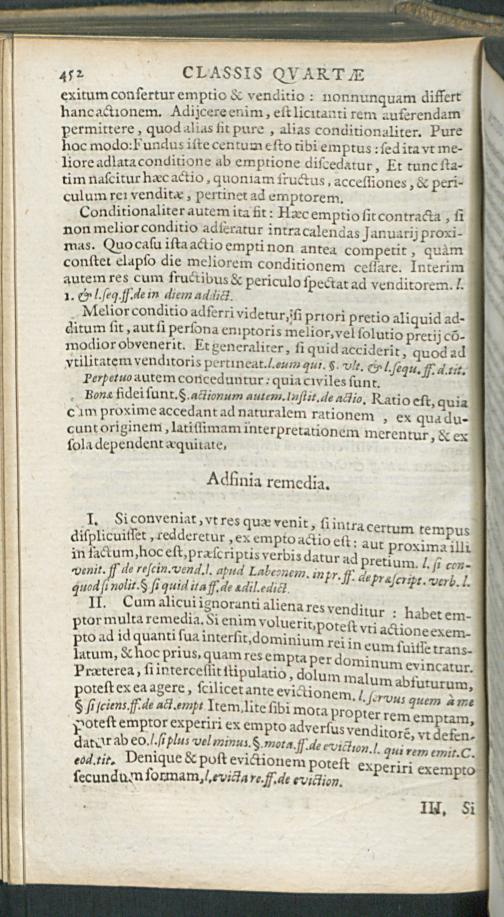 452 CLASSIS QVARTÆ
exitum confertur emptio & venditio : nonnunquam differt
hanc actionem. Adijcere enim, est licitanti rem auferendam
permittere, quod alias fit pure , alias conditionaliter. Pure
hoc modo: Fundus iste centum esto tibi emptus : sed ita vt me-
liore adlata conditione ab emptione discedatur, Et tunc sta-
tim nascitur hæc actio, quoniam fructus, accessiones, & peri-
culum rei venditæ, pertinet ad emptorem.
Conditionaliter autem ita fit : Hæc emptio sit contracta , si
non melior conditio adferatur intra calendas Januarij proxi-
mas. Quo casu ista actio empti non antea competit , quàm
constet elapso die meliorem conditionem cessare. Interim
autem res cum fructibus & periculo spectat ad venditorem. l.
1. & l. seq. ff. de in diem addict.
Melior conditio adferri videtur, si priori pretio aliquid ad-
ditum sit , aut si persona emptoris melior, vel solutio pretij cõ-
modior obvenerit. Et generaliter, si quid acciderit, quod ad
vtilitatem venditoris pertineat. l. eum qui. §. vlt. & l. sequ. ff. d. tit.
Perpetuo autem conceduntur : quia civiles sunt.
Bonæ fidei sunt. §. actionum autem. Instit. de actio. Ratio est, quia
cum proxime accedant ad naturalem rationem , ex qua du-
cunt originem, latissimam interpretationem merentur, & ex
sola dependent æquitate.
Adfinia remedia.
I. Si conveniat, vt res quæ venit, si intra certum tempus
displicuisset , redderetur , ex empto actio est : aut proxima illi
in factum, hoc est, præscriptis verbis datur ad pretium. l. si con-
venit. ff. de rescin. vend. l. apud Labeonem. in pr. ff. de præscript. verb. l.
quod si nolit. § si quid ita ff. de ædil. edict.
II. Cum alicui ignoranti aliena res venditur : habet em-
ptor multa remedia. Si enim voluerit, potest vti actione exem-
pto ad id quanti sua intersit, dominium rei in eum fuisse trans-
latum, & hoc prius, quam res empta per dominum evincatur.
Præterea, si intercessit stipulatio, dolum malum abfuturum,
potest ex ea agere, scilicet ante evictionem. l. servus quem à me
§ si sciens. ff. de act. empt Item, lite sibi mota propter rem emptam,
potest emptor experiri ex empto adversus venditorẽ, vt defen-
datur ab eo. l. si plus vel minus. §. mota. ff. de eviction. l. qui rem emit. C.
eod. tit. Denique & post evictionem potest experiri exempto
secundum formam, l. evicta re. ff. de eviction.
III. Si